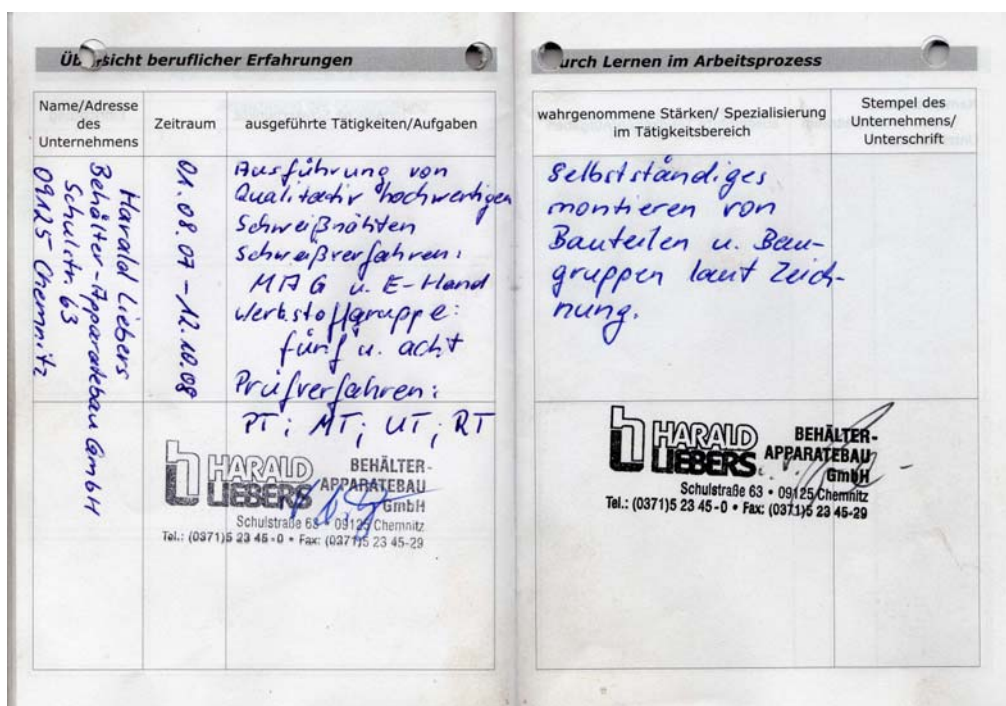 Übersicht beruflicher Erfahrungen
Name/Adresse
des
Unternehmens
Zeitraum
ausgeführte Tätigkeiten/Aufgaben
Harald Liebers
Behälter-Apparatebau GmbH
Schulstr. 63
09125 Chemnitz
01.08.07 - 12.10.08
Ausführung von
Qualitativ hochwertigen
Schweißnähten
Schweißverfahren:
MAG u. E-Hand
Werkstoffgruppe:
fünf u. acht
Prüfverfahren:
PT; MT; UT; RT
HARALD
LIEBERS
BEHÄLTER-
APPARATEBAU
GmbH
Schulstraße 63 • 09125 Chemnitz
Tel.: (0371)5 23 45-0 • Fax: (0371)5 23 45-29
urch Lernen im Arbeitsprozess
wahrgenommene Stärken/ Spezialisierung
im Tätigkeitsbereich
Stempel des
Unternehmens/
Unterschrift
Selbstständiges
montieren von
Bauteilen u. Bau-
gruppen laut Zeich-
nung.
HARALD
LIEBERS
BEHÄLTER-
APPARATEBAU
GmbH
Schulstraße 63 • 09125 Chemnitz
Tel.: (0371)5 23 45-0 • Fax: (0371)5 23 45-29